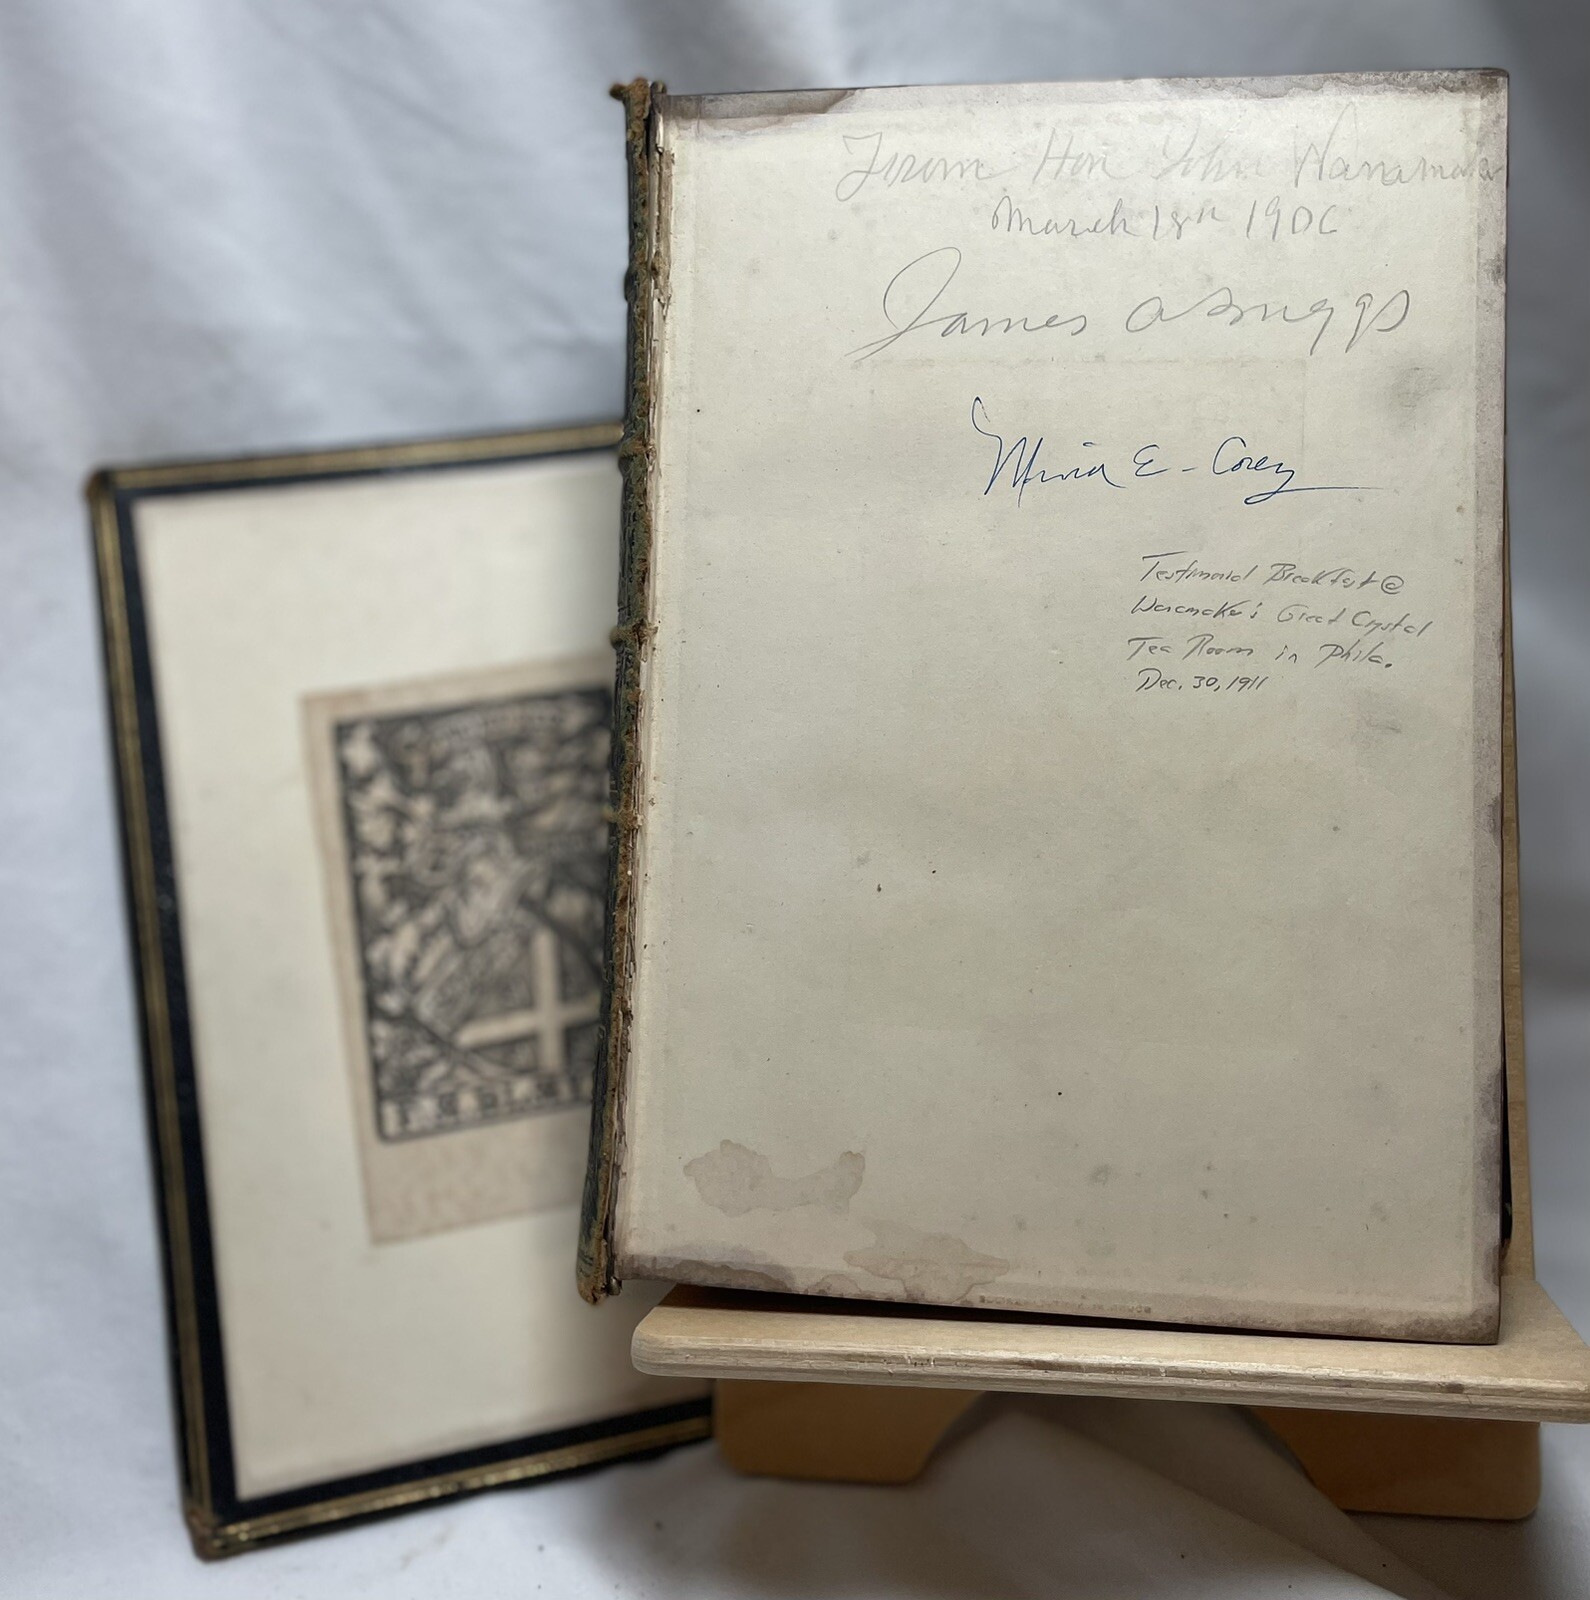 From Hon John Wanamaker
March 18th 1906
James A Briggs
E - Corey
Testimonial Breakfast @
Wanamaker's Great Crystal
Tea Room in Phila.
Dec. 30, 1911